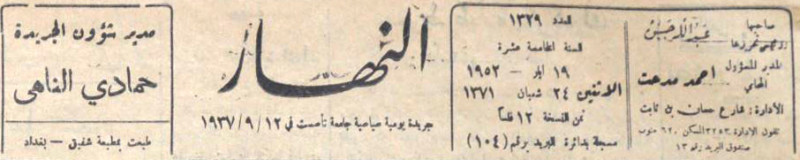 صاحبها
ورئيس تحريرها عبدالله حسن
المدير المسؤول
المحامي احمد مدحت
الأدارة: شارع حسان بن ثابت
تلفون الادارة ٣٢٥٣ السكن ٦٢٠ جنوب
صندوق البريد رقم ١٣
العدد ١٣٢٩
السنة الخامسة عشرة
١٩ ايار — ١٩٥٢
الاثنين ٢٤ شعبان ١٣٧١
ثمن النسخة ١٢ فلسا
مسجلة بدائرة البريد برقم (١٠٤)
النهار
جريدة يومية سياسية جامعة تأسست في ١٢/٩/١٩٣٧
مدير شؤون الجريدة
حمادي الناهي
طبعت بمطبعة شفيق — بغداد